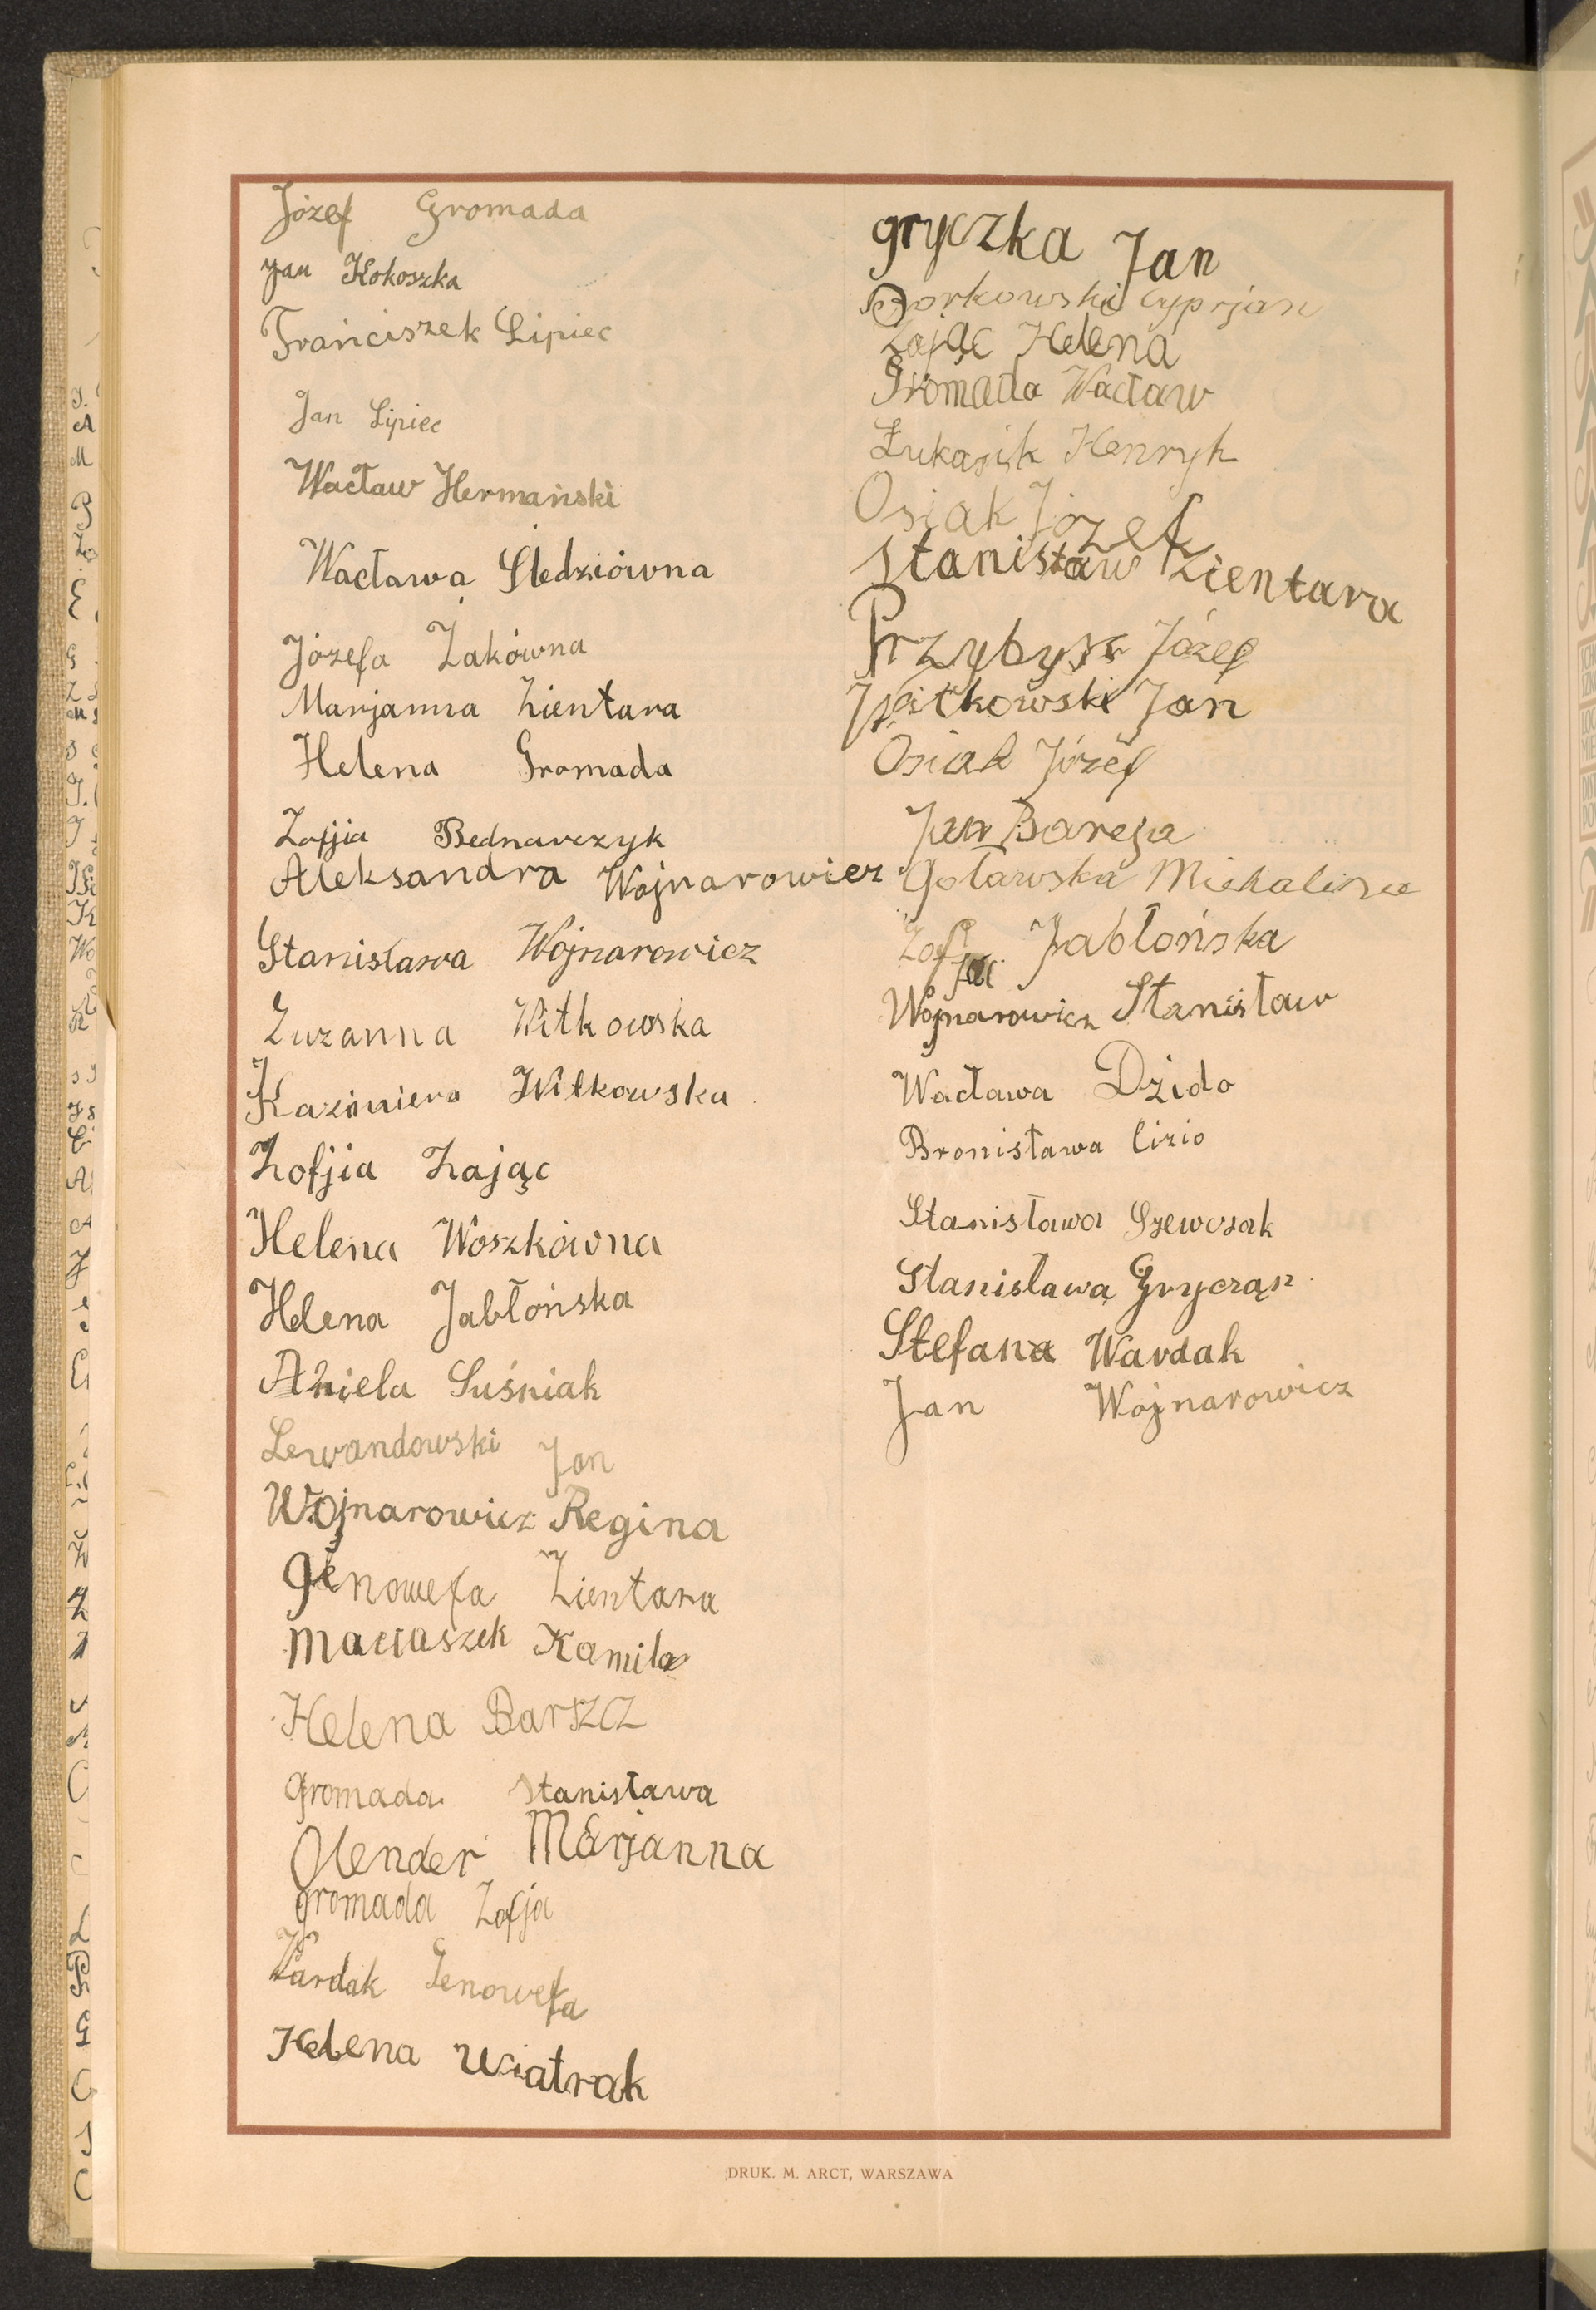 Józef Gromada
Jan Kokoszka
Franciszek Lipiec
Jan Lipiec
Wacław Hermański
Wacława Śledziówna
Józefa Żakówna
Marjanna Zientara
Helena Gromada
Zofjia Bednarczyk
Aleksandra Wojnarowicz
Stanisława Wojnarowicz
Zuzanna Witkowska
Kazimiera Witkowska
Zofjia Zając
Helena Woszkówna
Helena Jabłońska
Aniela Suśniak
Lewandowski Jan
Wojnarowicz Regina
Genowefa Zientara
Maciaszek Kamila
Helena Barszcz
Gromada Stanisława
Olender Marjanna
Gromada Zofja
Wardak Genowefa
Helena Wiatrak
gryczka Jan
Borkowski Cyprjan
Zając Helena
Gromada Wacław
Łukasik Henryk
Osiak Józef
Stanisław Zientara
Przybysz Józef
Witkowski Jan
Osiak Józef
Jan Bareja
Gotawska Michalina
Zofja Jabłońska
Wojnarowicz Stanisław
Wacława Dzido
Bronisława Cizio
Stanisława Szewczak
Stanisława Gryczan
Stefana Wardak
Jan Wojnarowicz
DRUK. M. ARCT, WARSZAWA